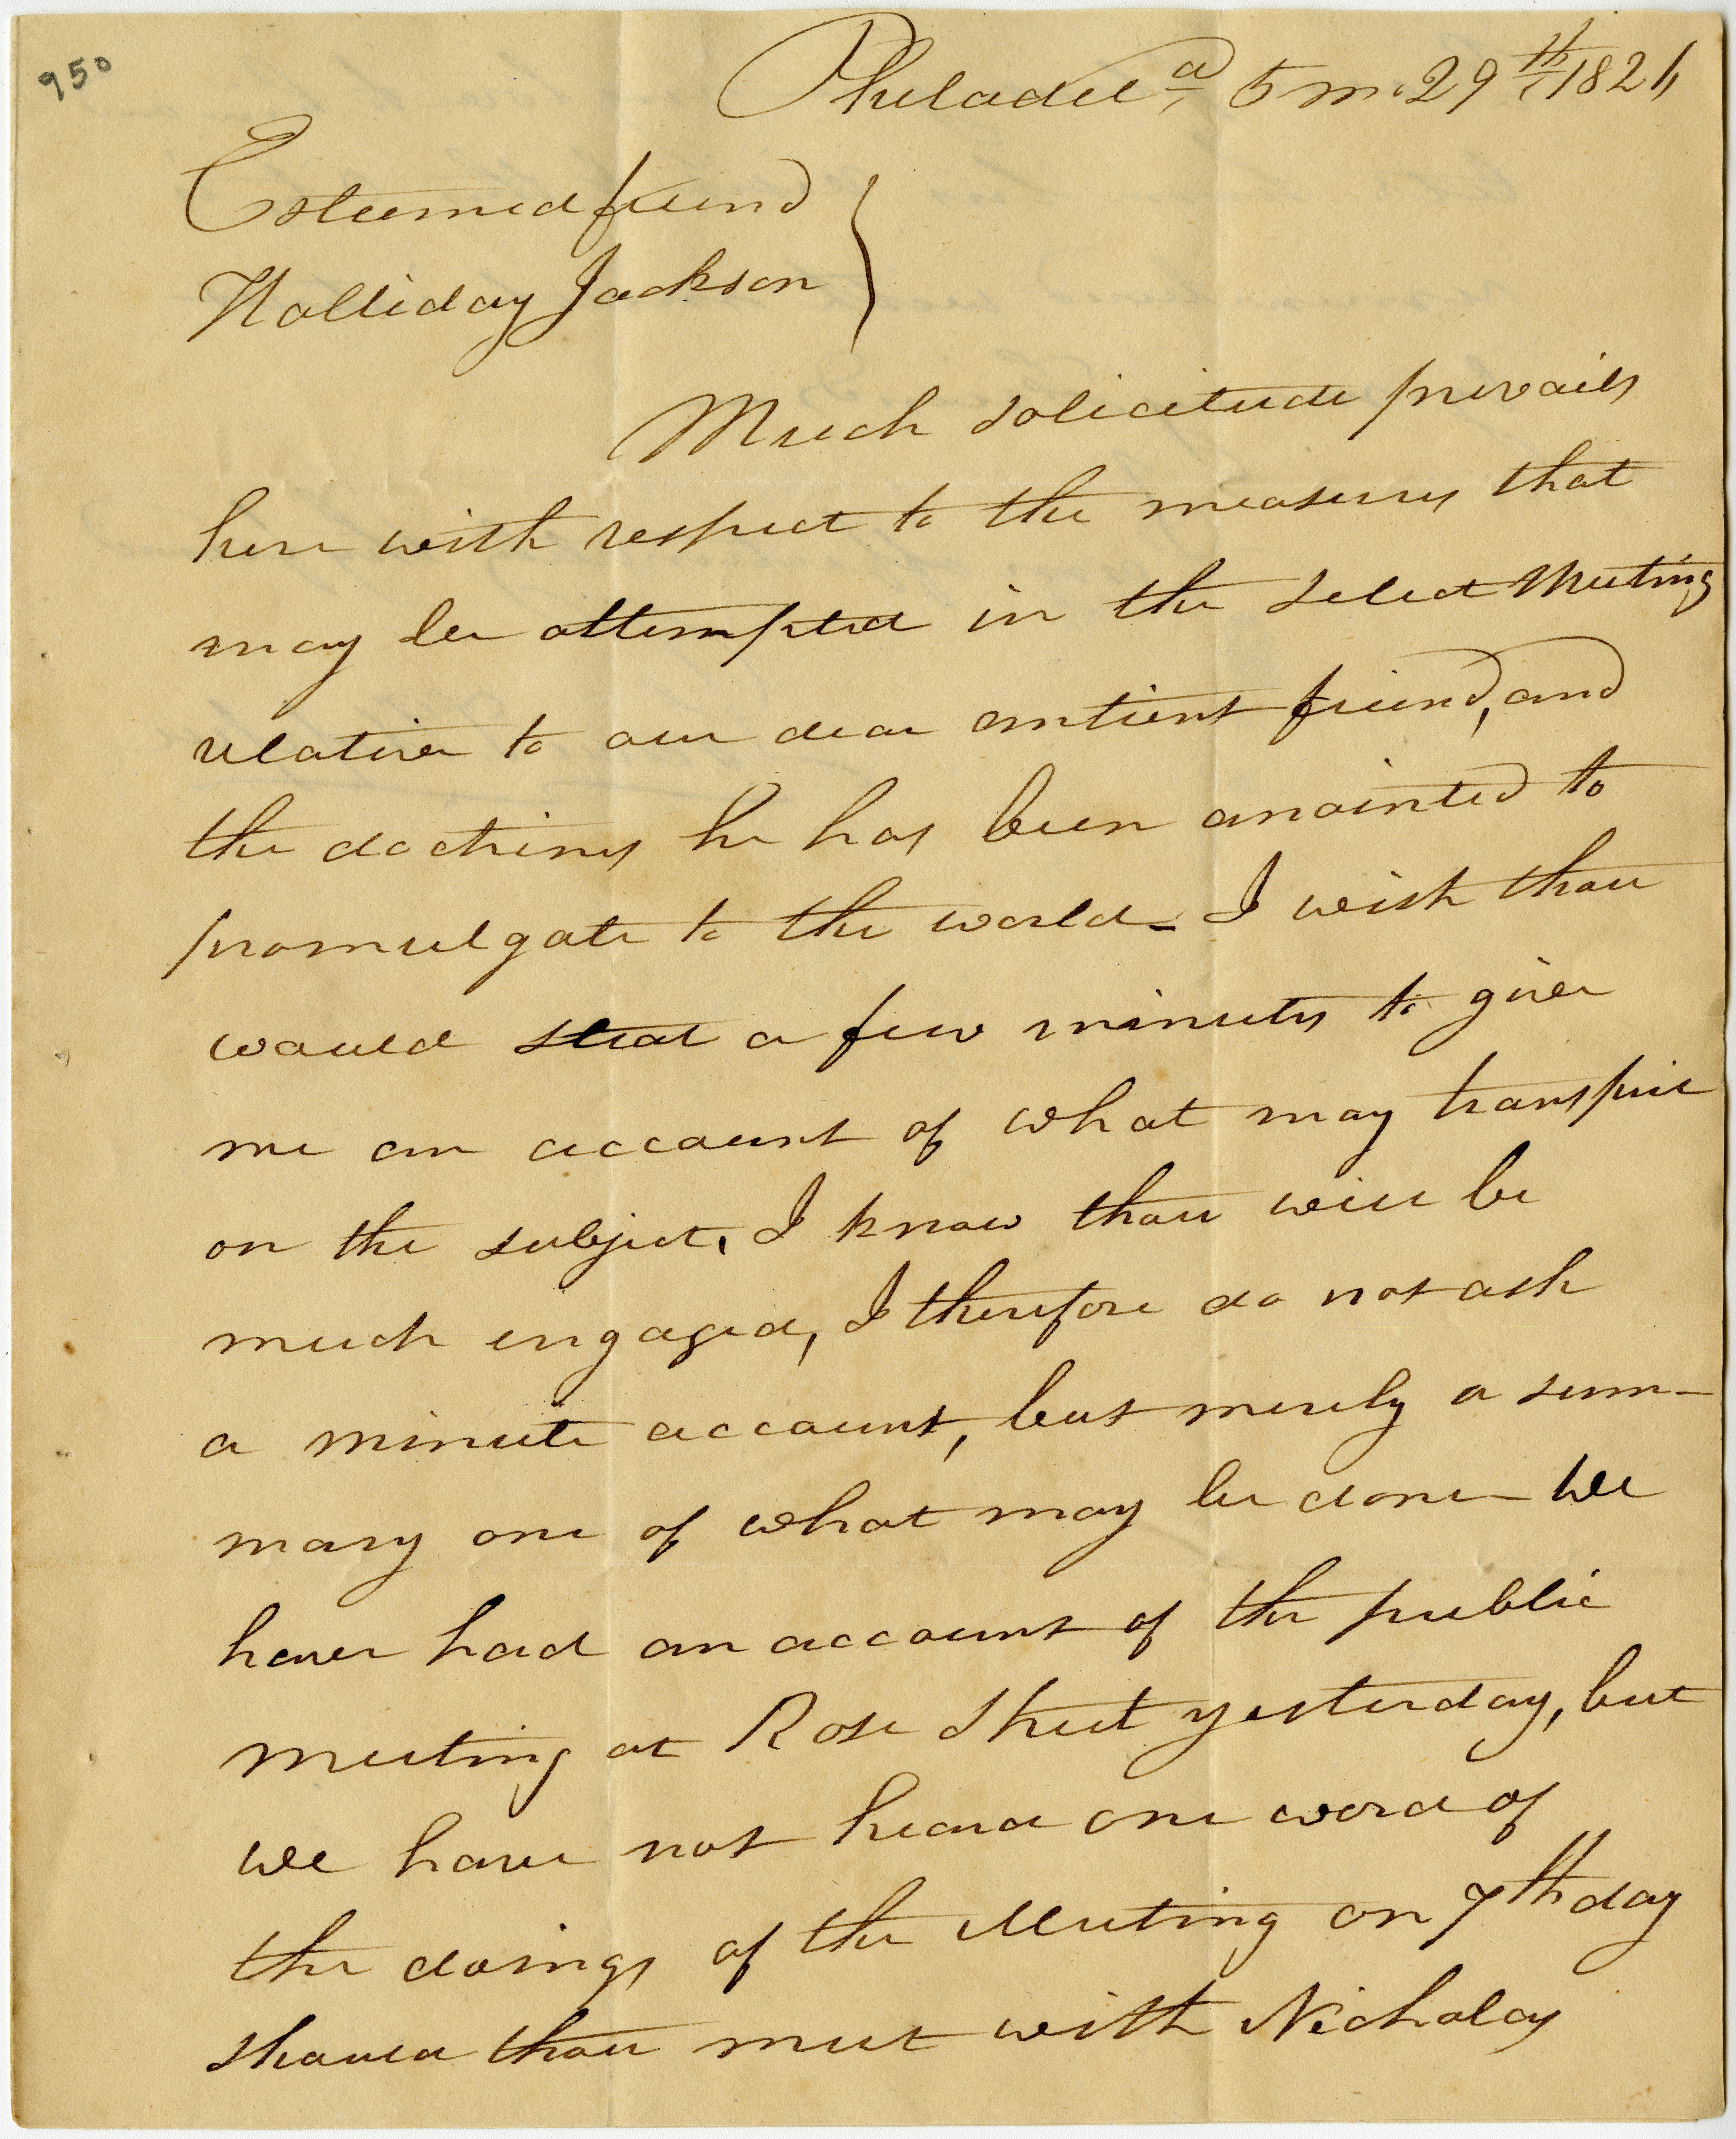 950
Philadelª, 5 m. 29th 1826
Esteemed friend
Halliday Jackson
Much solicitude prevails
here with respect to the measures that
may be attempted in the select Meeting
relative to our dear antient friend, and
the doctrines he has been anointed to
promulgate to the world_ I wish thou
would steal a few minutes to give
me an account of what may transpire
on the subject, I know thou will be
much engaged, I therefore do not ask
a minute account, but merely a sum-
mary one of what may be done_ We
have had an account of the public
meeting at Rose Street yesterday, but
we have not heard one word of
the doings of the Meeting on 7th day
Should thou meet with Nicholas